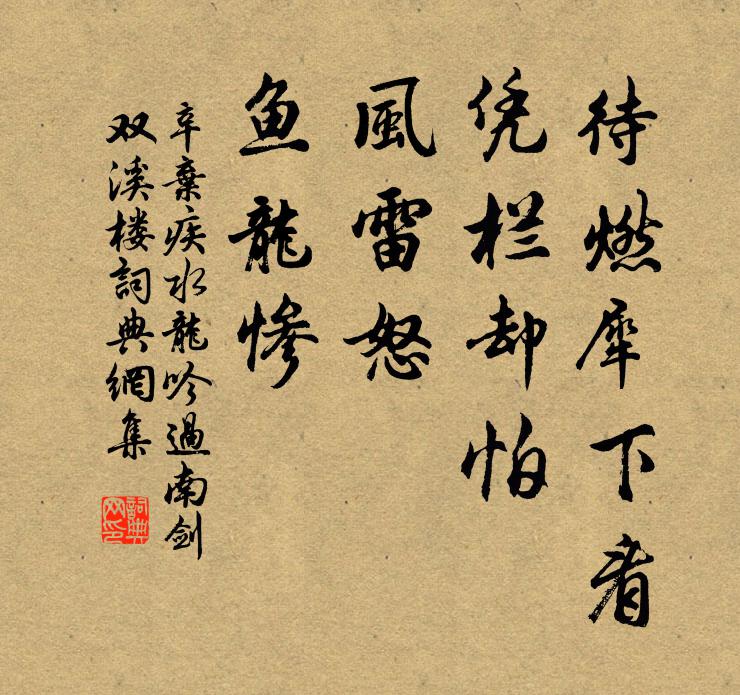 待燃犀下看
凭栏却怕
風雷怒
鱼龍惨
辛棄疾水龍吟過南剑
双溪楼詞典網集
詞典网印